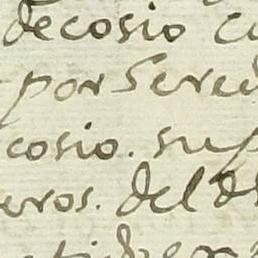 decosio
por Sered
cosio. sup
eros. del d